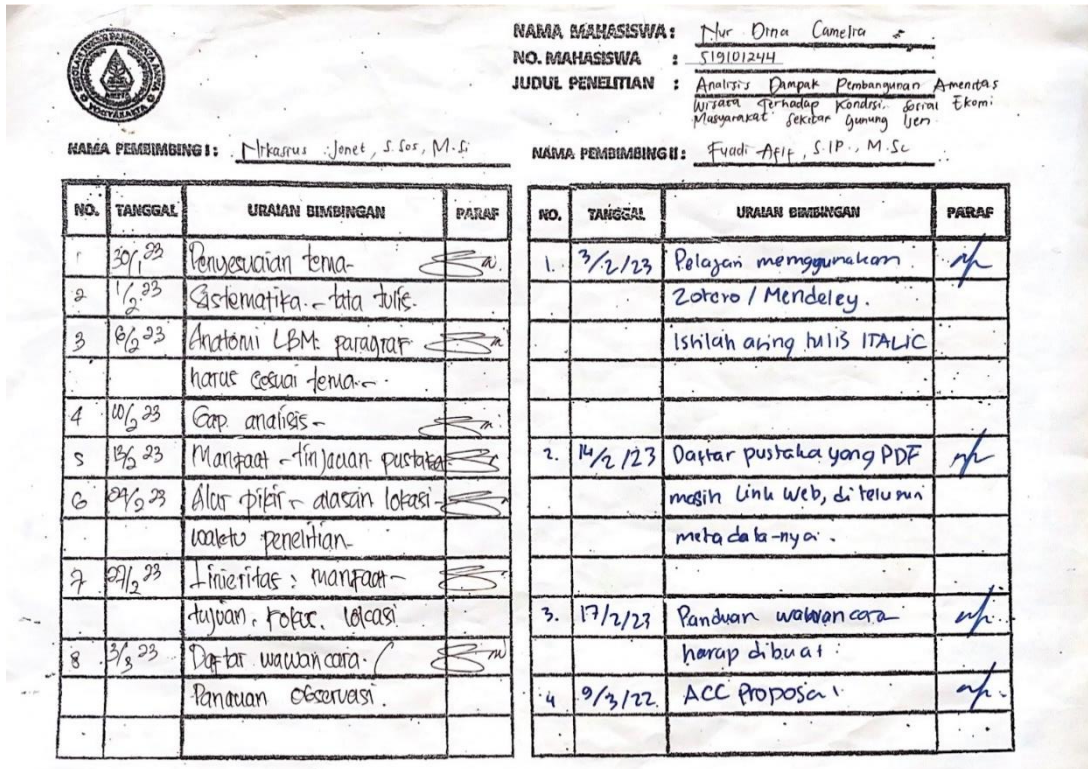 NAMA MAHASISWA: Nur Dina Camelia
NO. MAHASISWA : 519101244
JUDUL PENELITIAN : Analisis Dampak Pembangunan Amenitas
Wisata Terhadap Kondisi Sosial Ekomi
Masyarakat Sekitar Gunung Ijen
NAMA PEMBIMBING I: Jonet, S.Sos, M.Si
NAMA PEMBIMBING II: Fuadi Afif, S.IP., M.Sc
NO. TANGGAL URAIAN BIMBINGAN PARAF
1 30/1 23 Penyesuaian tema-
2 1/2 23 Sistematika - tata tulis.
3 6/2 23 Anatomi LBM: paragraf
harus sesuai tema-
4 10/2 23 Gap analisis-
5 13/2 23 Manfaat - tinjauan pustaka
6 24/2 23 Alur pikir - alasan lokasi-
waktu penelitian-
7 27/2 23 Linieritas: manfaat-
tujuan, fokus, lokasi
8 3/3 23 Daftar wawancara /
Panduan observasi.
NO. TANGGAL URAIAN BIMBINGAN PARAF
1. 3/2/23 Pelajari memggunakan
Zotero / Mendeley.
Istilah asing tulis ITALIC
2. 14/2/23 Daftar pustaka yang PDF
masih link web, ditelusuri
metadata-nya.
3. 17/2/23 Panduan wawancara
harap dibuat
4 9/3/22. ACC Proposal